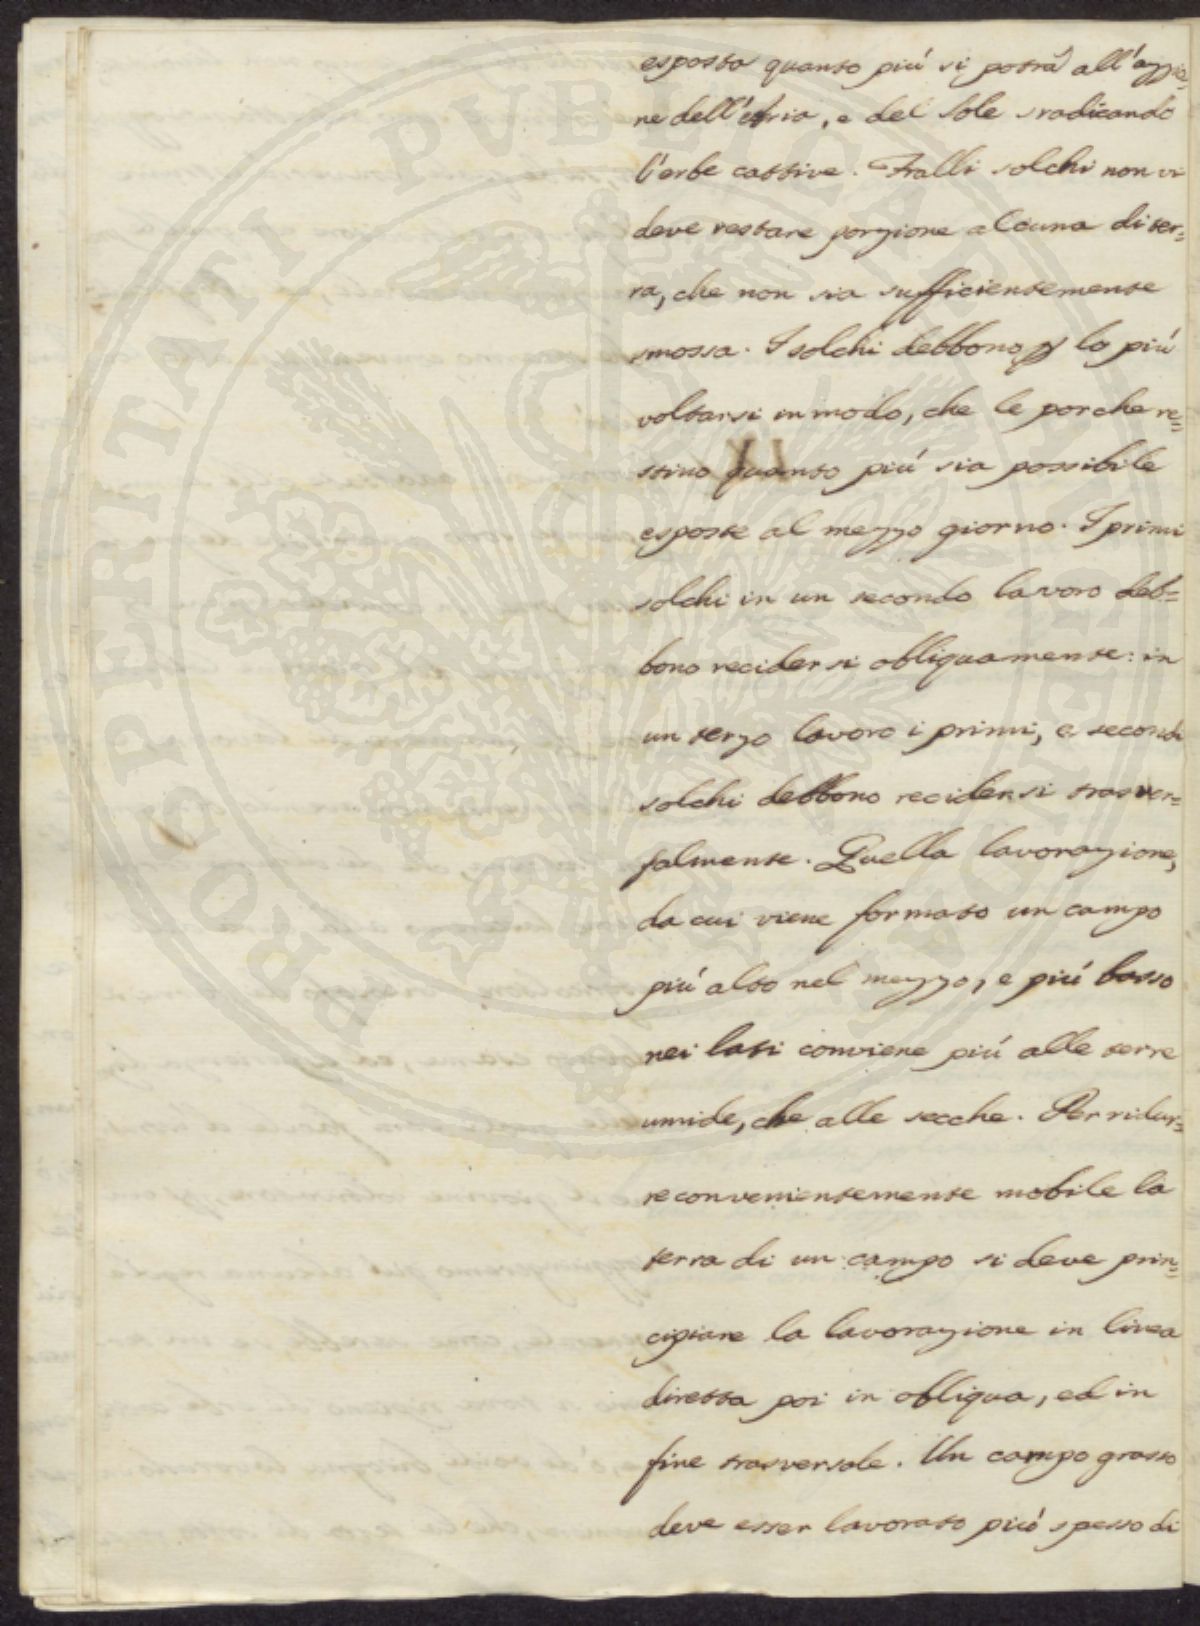 esposta quanto piú si potrá all'azzio=
ne dell'Aria, e del Sole sradicando
l'erbe cattive. Fralli solchi non vi
deve restare porzione alcuna di ter=
ra, che non sia sufficientemente
smossa. I solchi debbono p lo piú
voltarsi in modo, che le porche re=
stino quanto piú sia possibile
esposte al mezzo giorno. I primi
solchi in un secondo lavoro deb=
bono recidersi obliquamente: in
un terzo lavoro i primi, e secondi
solchi debbono recidersi trasver=
salmente. Quella lavorazione,
da cui viene formato un campo
piú alto nel mezzo, e piú basso
nei lati conviene piú alle terre
umide, che alle secche. Per ridur=
re convenientemente mobile la
terra di un campo si deve prin=
cipiare la lavorazione in linea
diretta poi in obliqua, ed in
fine trasversale. Un campo grasso
deve esser lavorato piú spesso di
PROSPERITATI PUBLICAE AUGENDAE